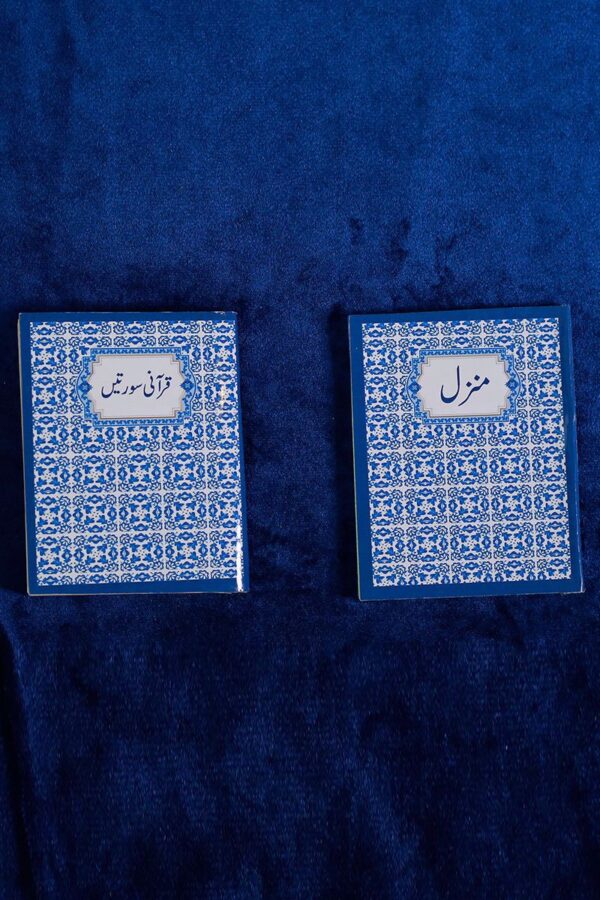 قرآنی سورتیں
منزل